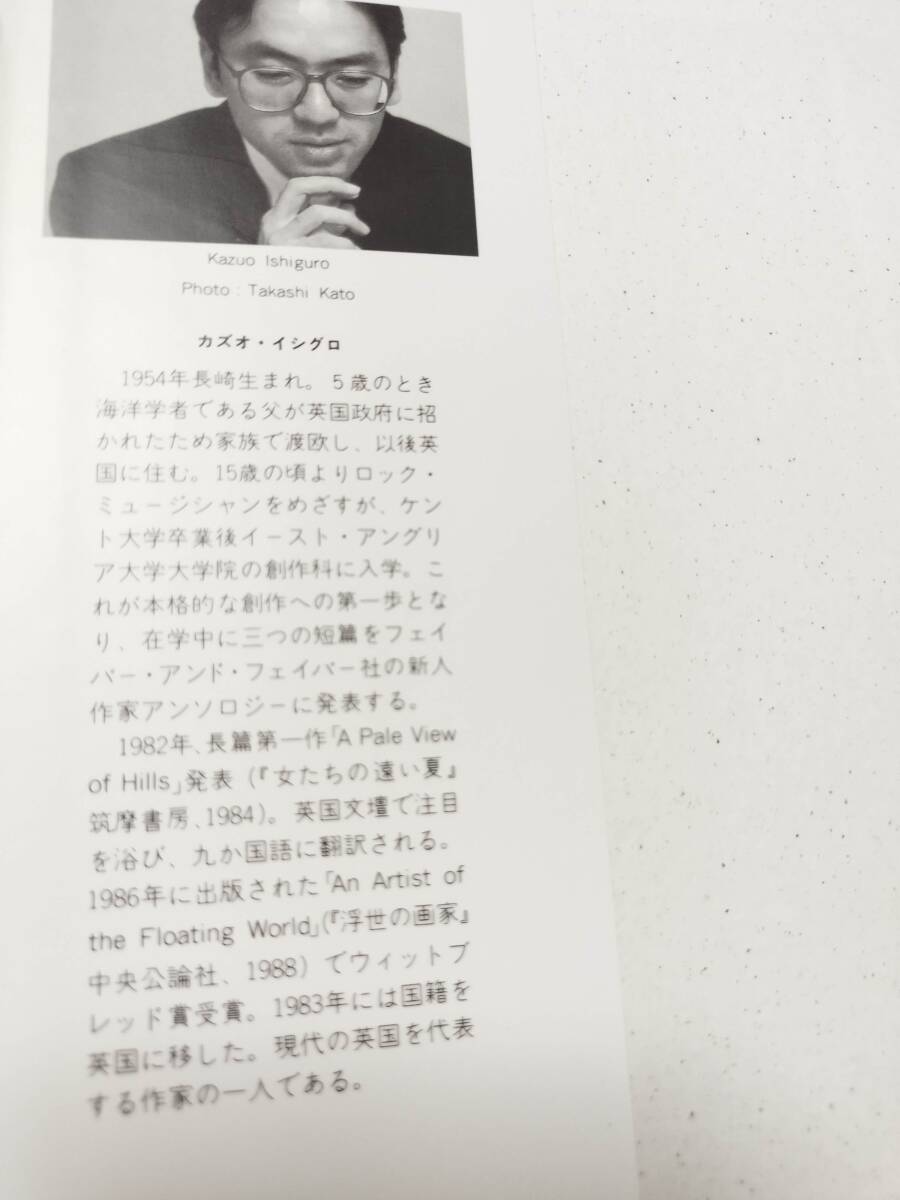 Kazuo Ishiguro
Photo : Takashi Kato
カズオ・イシグロ
1954年長崎生まれ。5歳のとき
海洋学者である父が英国政府に招
かれたため家族で渡欧し、以後英
国に住む。15歳の頃よりロック・
ミュージシャンをめざすが、ケン
ト大学卒業後イースト・アングリ
ア大学大学院の創作科に入学。こ
れが本格的な創作への第一歩とな
り、在学中に三つの短篇をフェイ
バー・アンド・フェイバー社の新人
作家アンソロジーに発表する。
1982年、長篇第一作「A Pale View
of Hills」発表（『女たちの遠い夏』
筑摩書房、1984）。英国文壇で注目
を浴び、九か国語に翻訳される。
1986年に出版された「An Artist of
the Floating World」（『浮世の画家』
中央公論社、1988）でウィットブ
レッド賞受賞。1983年には国籍を
英国に移した。現代の英国を代表
する作家の一人である。